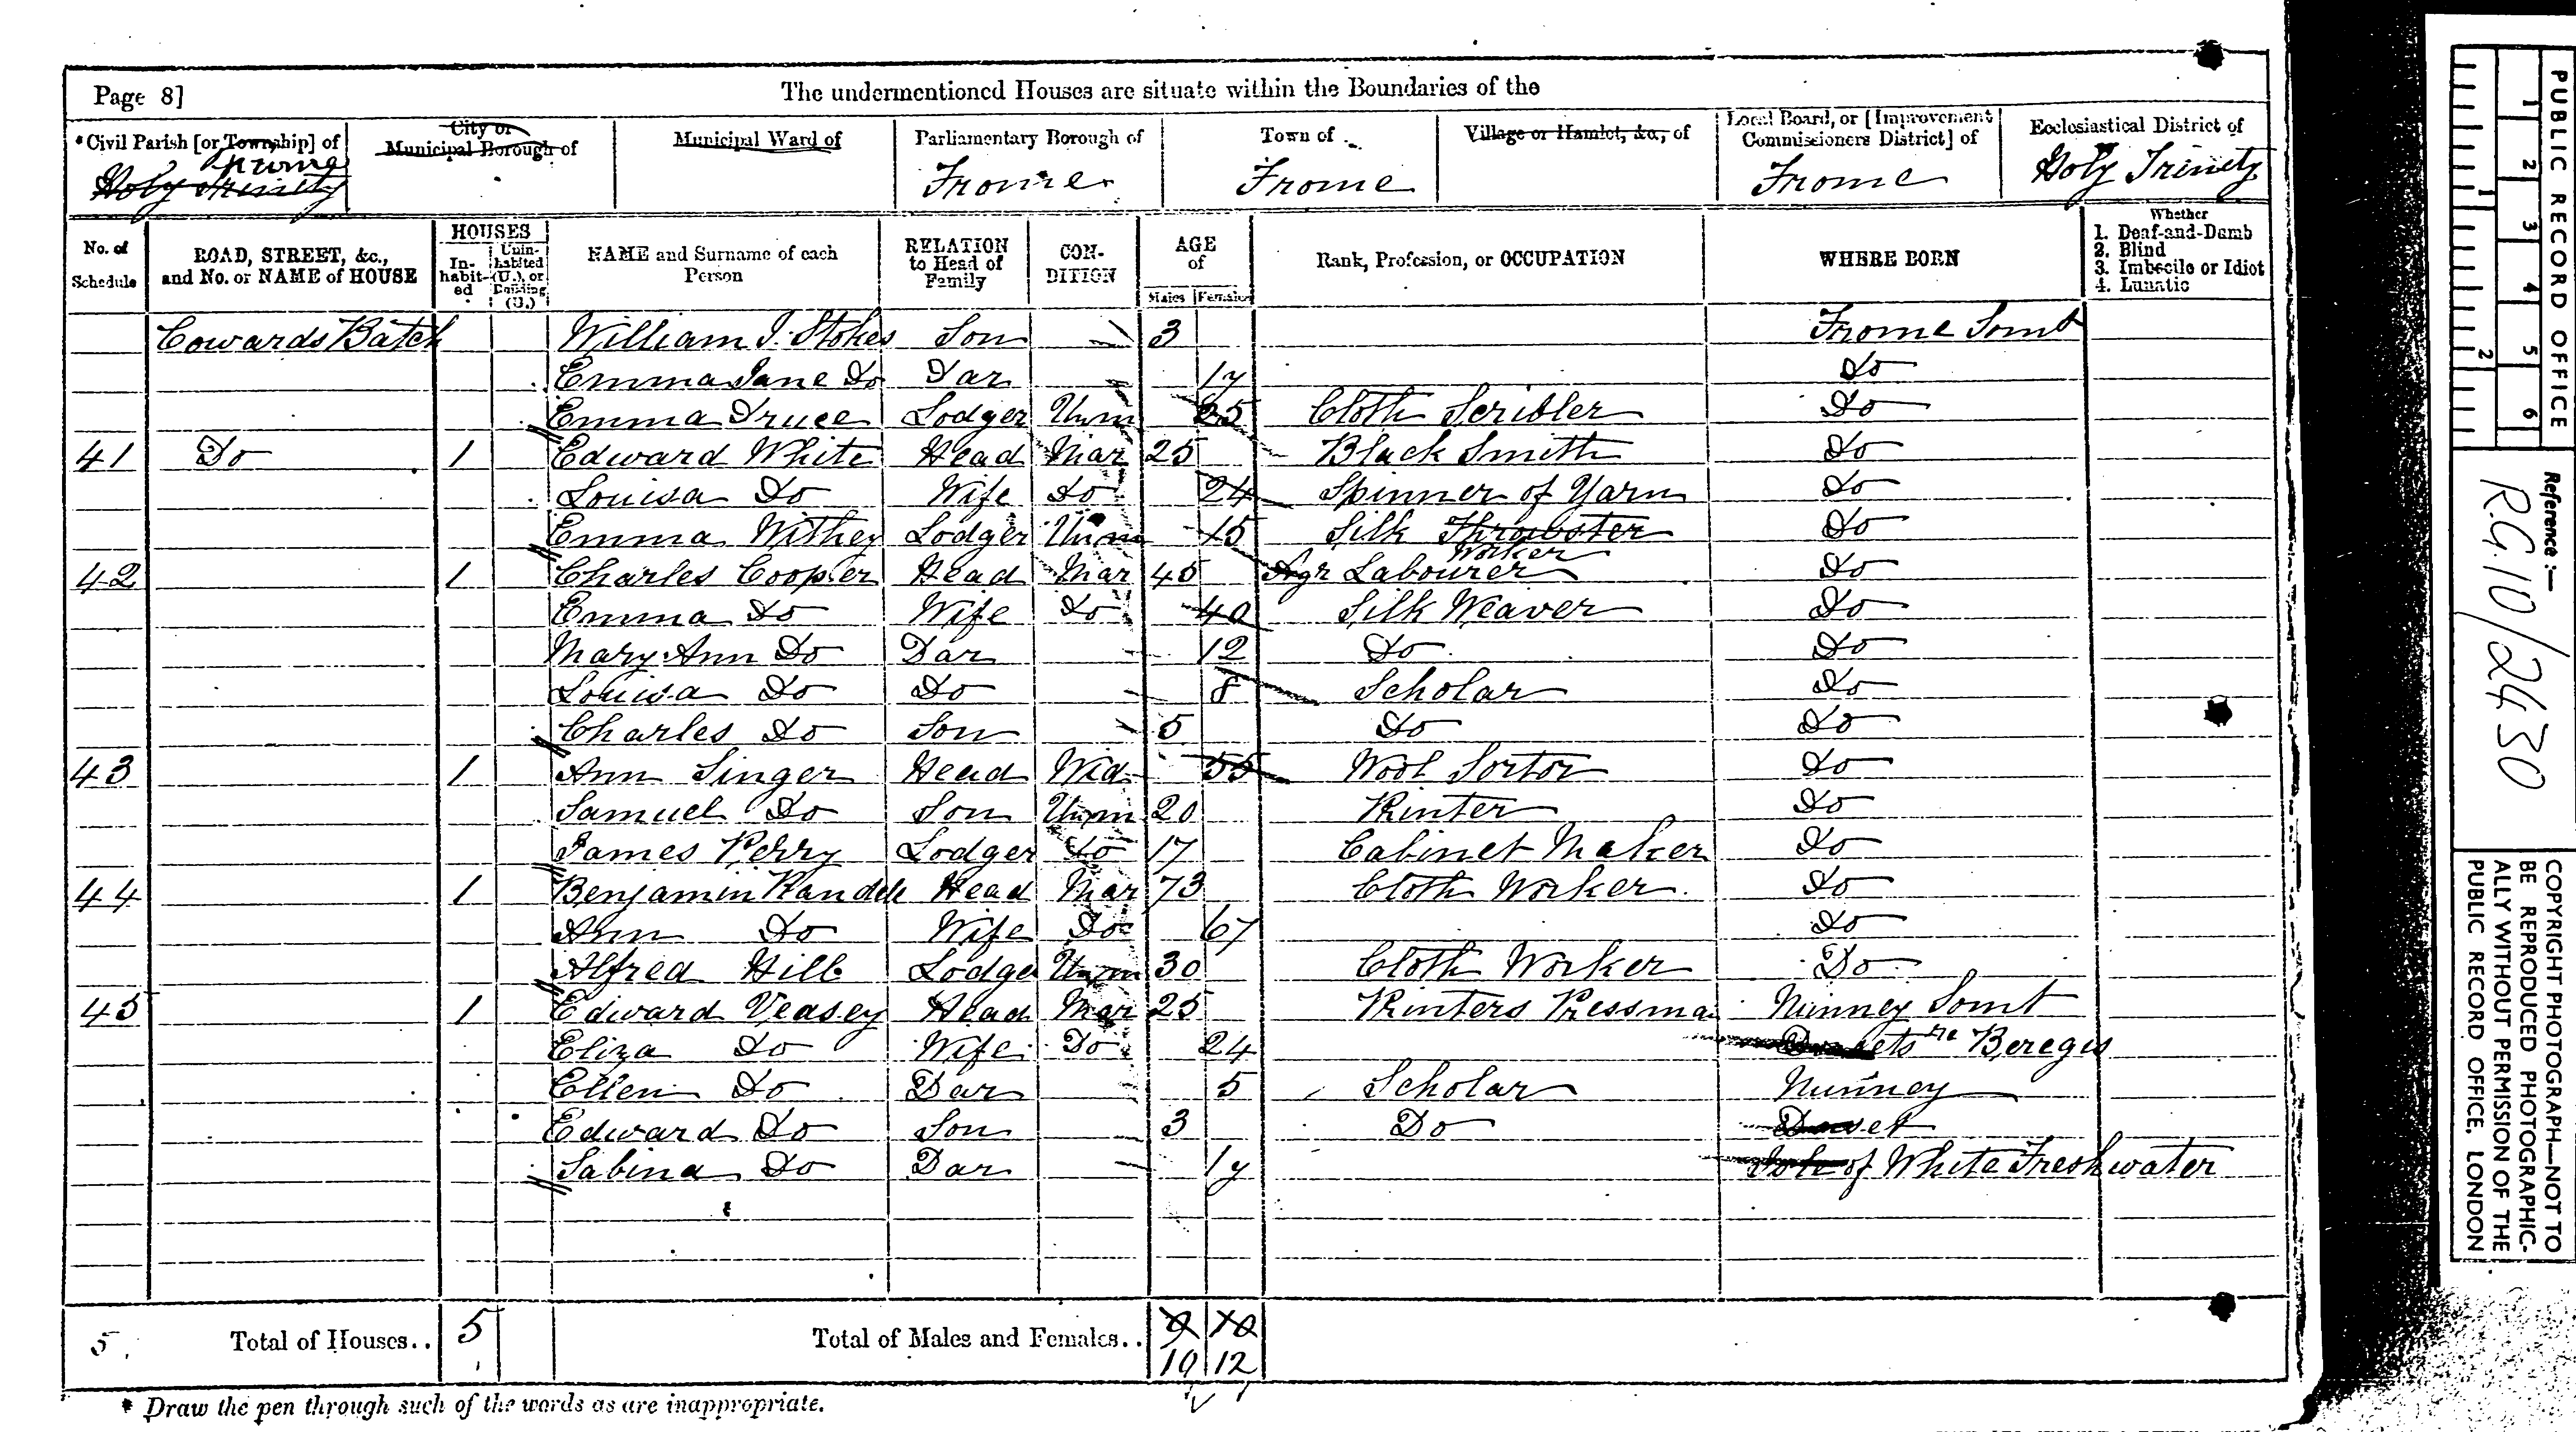 Page 8]
The undermentioned Houses are situate within the Boundaries of the
*Civil Parish [or Township] of
City or Municipal Borough of
Municipal Ward of
Parliamentary Borough of
Town of
Village or Hamlet, &c., of
Local Board, or [Improvement Commissioners District] of
Ecclesiastical District of
Frome
Holy Trinity
Frome
Frome
Frome
Holy Trinity
No. of Schedule
ROAD, STREET, &c., and No. or NAME of HOUSE
HOUSES
In-habit-ed
Unin-habited (U.), or Building (B.)
NAME and Surname of each Person
RELATION to Head of Family
CON-DITION
AGE of
Males Females
Rank, Profession, or OCCUPATION
WHERE BORN
Whether
1. Deaf-and-Dumb
2. Blind
3. Imbecile or Idiot
4. Lunatic
Cowards Batch William J. Stokes Son 3 Frome Somt
Emma Jane Do Dar 1y Do
Emma Druce Lodger Unm 25 Cloth Scribler Do
41 Do 1 Edward White Head Mar 25 Black Smith Do
Louisa Do Wife Do 24 Spinner of Yarn Do
Emma Withey Lodger Unm 15 Silk Throwster Do
Worker
42 1 Charles Cooper Head Mar 45 Agr Labourer Do
Emma Do Wife Do 40 Silk Weaver Do
Mary Ann Do Dar 12 Do Do
Louisa Do Do 8 Scholar Do
Charles Do Son 5 Do Do
43 1 Ann Singer Head Wid 55 Wool Sortor Do
Samuel Do Son Unm 20 Printer Do
James Perry Lodger Do 17 Cabinet Maker Do
44 1 Benjamin Randle Head Mar 73 Cloth Worker Do
Ann Do Wife Do 67 Do
Alfred Hill Lodge Unm 30 Cloth Worker Do
45 1 Edward Veasey Head Mar 25 Printers Pressma Nunney Somt
Eliza Do Wife Do 24 Beregis
Ellen Do Dar 5 Scholar Nunney
Edward Do Son 3 Do Dorset
Sabina Do Dar 1y Isle of White Freshwater
5 Total of Houses.. 5 Total of Males and Females.. 9 10
10 12
* Draw the pen through such of the words as are inappropriate.
PUBLIC RECORD OFFICE
1 2 3 4 5 6
1 2
Reference :—
R.G. 10/2430
COPYRIGHT PHOTOGRAPH—NOT TO
BE REPRODUCED PHOTOGRAPHIC-
ALLY WITHOUT PERMISSION OF THE
PUBLIC RECORD OFFICE, LONDON